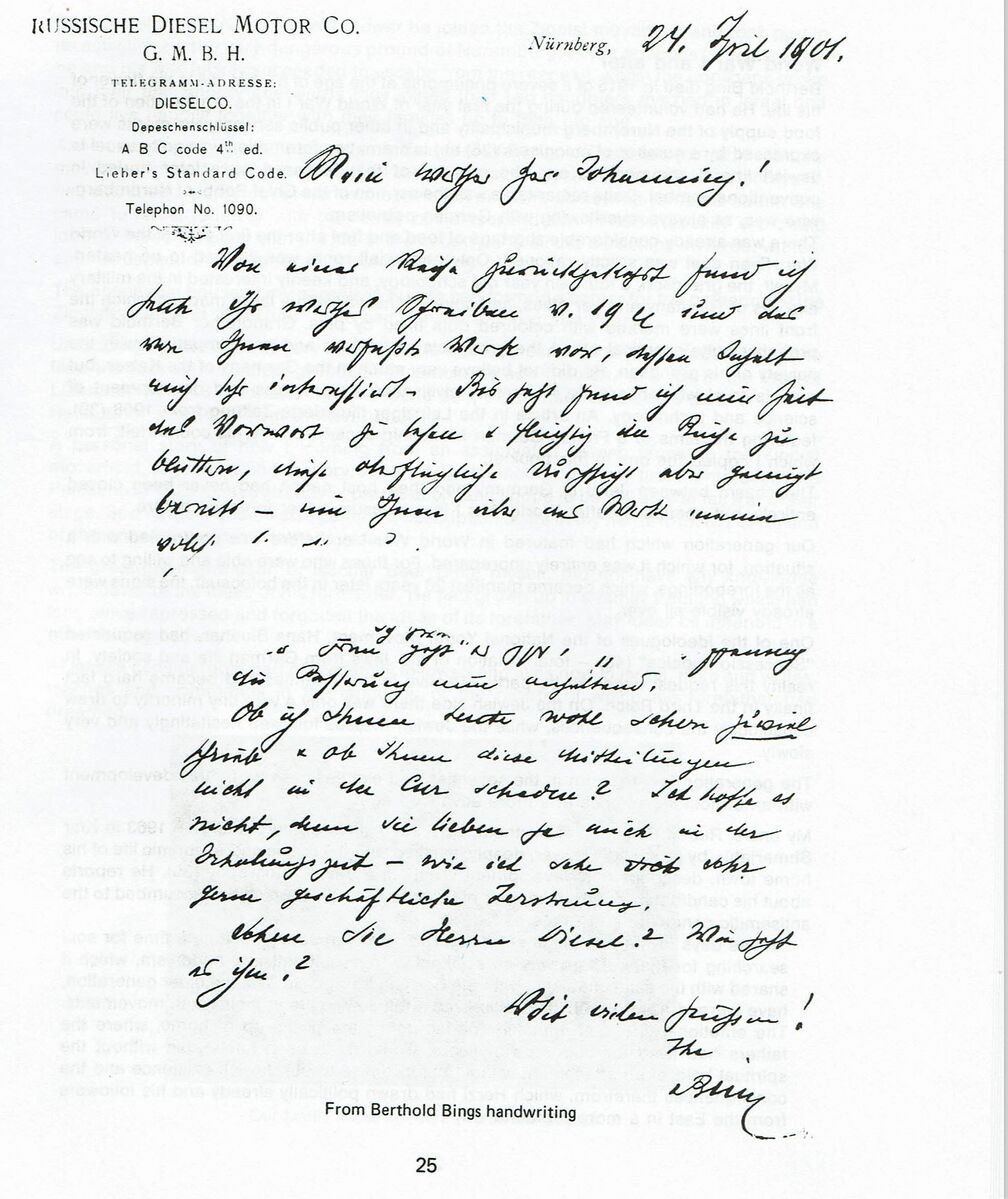 RUSSISCHE DIESEL MOTOR CO.
G. M. B. H.
TELEGRAMM-ADRESSE:
DIESELCO.
Depeschenschlüssel:
A B C code 4th ed.
Lieber's Standard Code.
Telephon No. 1090.
Nürnberg, 24. April 1901.
Mein werther Herr Johanning.
Von einer Reise zurückgekehrt fand ich
heute Ihr werthes Schreiben v. 19 und das
von Ihnen verfaßte Werk vor, dessen Inhalt
mich sehr interessirt. Bis jetzt fand ich nur Zeit
das Vorwort zu lesen & flüchtig die Reihe zu
blättern, diese oberflächliche aber genügt
bereits – um Ihnen über das Werk meine
die Besserung nun anhaltend.
Ob ich Ihnen heute wohl schon zuviel
schrieb & ob Ihnen diese Mitteilungen
nicht in der Cur schaden? Ich hoffe es
nicht, denn Sie lieben ja auch in der
Erholungszeit – wie ich sehr
gerne geschäftliche Zerstreuung.
Sehen Sie Herrn Diesel? Wie geht
es ihm?
Mit vielen Grüßen!
Ihr
Bing
From Berthold Bings handwriting
25